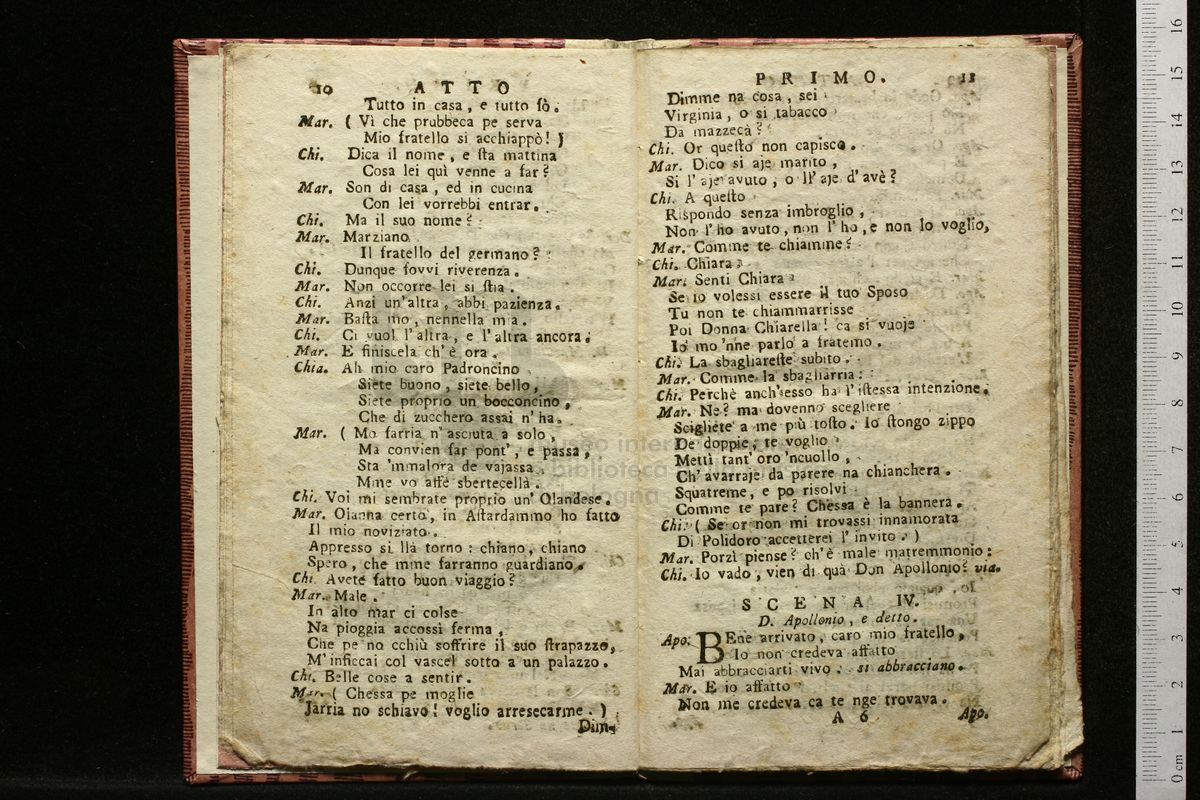 10 ATTO
Tutto in casa, e tutto fò.
Mar. ( Vì che prubbeca pe serva
Mio fratello si acchiappò! )
Chi. Dica il nome, e ſta mattina
Cosa lei quì venne a far?
Mar. Son di casa, ed in cucina
Con lei vorrebbi entrar.
Chi. Ma il suo nome?
Mar. Marziano
Il fratello del germano?
Chi. Dunque ſovvi riverenza.
Mar. Non occorre lei si ſtia.
Chi. Anzi un'altra, abbi pazienza.
Mar. Baſta mo, nennella mia.
Chi. Ci vuol l'altra, e l'altra ancora.
Mar. E finiscela ch'è ora.
Chia. Ah mio caro Padroncino
Siete buono, siete bello,
Siete proprio un bocconcino,
Che di zucchero assai n'ha.
Mar. ( Mo farria n'asciuta a solo,
Ma convien far pont', e passa,
Sta 'mmalora de vajassa
Mme vo affè sbertecellà.
Chi. Voi mi sembrate proprio un' Olandese.
Mar. Oianna certo, in Aſtardammo ho fatto
Il mio noviziato.
Appresso si llà torno: chiano, chiano
Spero, che mme farranno guardiano.
Chi. Avete fatto buon viaggio?
Mar. Male.
In alto mar ci colse
Na pioggia accossì ferma,
Che pe no cchiù soffrire il suo ſtrapazzo,
M'inficcai col vascel sotto a un palazzo.
Chi. Belle cose a sentir.
Mar. ( Chessa pe moglie
Jarria no schiavo! voglio arresecarme. )
Dim-
PRIMO. 11
Dimme na cosa, sei
Virginia, o si tabacco
Da mazzecà?
Chi. Or queſto non capisco.
Mar. Dico si aje marito,
Si l'aje avuto, o ll'aje d'avè?
Chi. A queſto
Rispondo senza imbroglio,
Non l'ho avuto, non l'ho, e non lo voglio,
Mar. Comme te chiamme?
Chi. Chiara
Mar. Senti Chiara
Se io volessi essere il tuo Sposo
Tu non te chiammarrisse
Poi Donna Chiarella! ca si vuoje
Io mo 'nne parlo a fratemo.
Chi. La sbagliareſte subito.
Mar. Comme la sbagliarria:
Chi. Perchè anch'esso ha l'iſtessa intenzione.
Mar. Ne? ma dovenno scegliere
Scigliete a me più toſto. Io ſtongo zippo
De doppie, te voglio
Mettì tant'oro 'ncuollo,
Ch'avarraje da parere na chianchera.
Squatreme, e po risolvi
Comme te pare? Chessa è la bannera.
Chi. ( Se or non mi trovassi innamorata
Di Polidoro accetterei l'invito. )
Mar. Porzì piense? ch'è male matremmonio:
Chi. Io vado, vien di quà Don Apollonio? via.
SCENA IV.
D. Apollonio, e detto.
Apo. BEne arrivato, caro mio fratello,
Io non credeva affatto
Mai abbracciarti vivo. si abbracciano.
Mar. E io affatto
Non me credeva ca te nge trovava.
A 6 Apo.